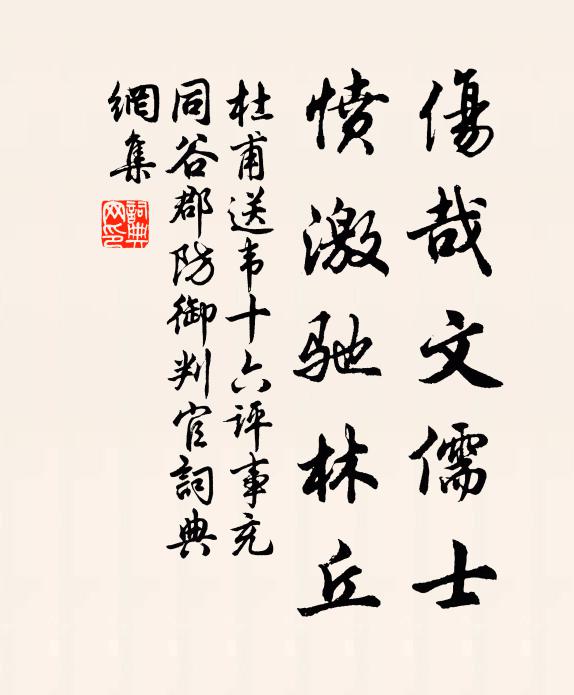 傷哉文儒士
憤激馳林丘
杜甫送韦十六評事充
同谷郡防御判官詞典
網集
詞典
网印